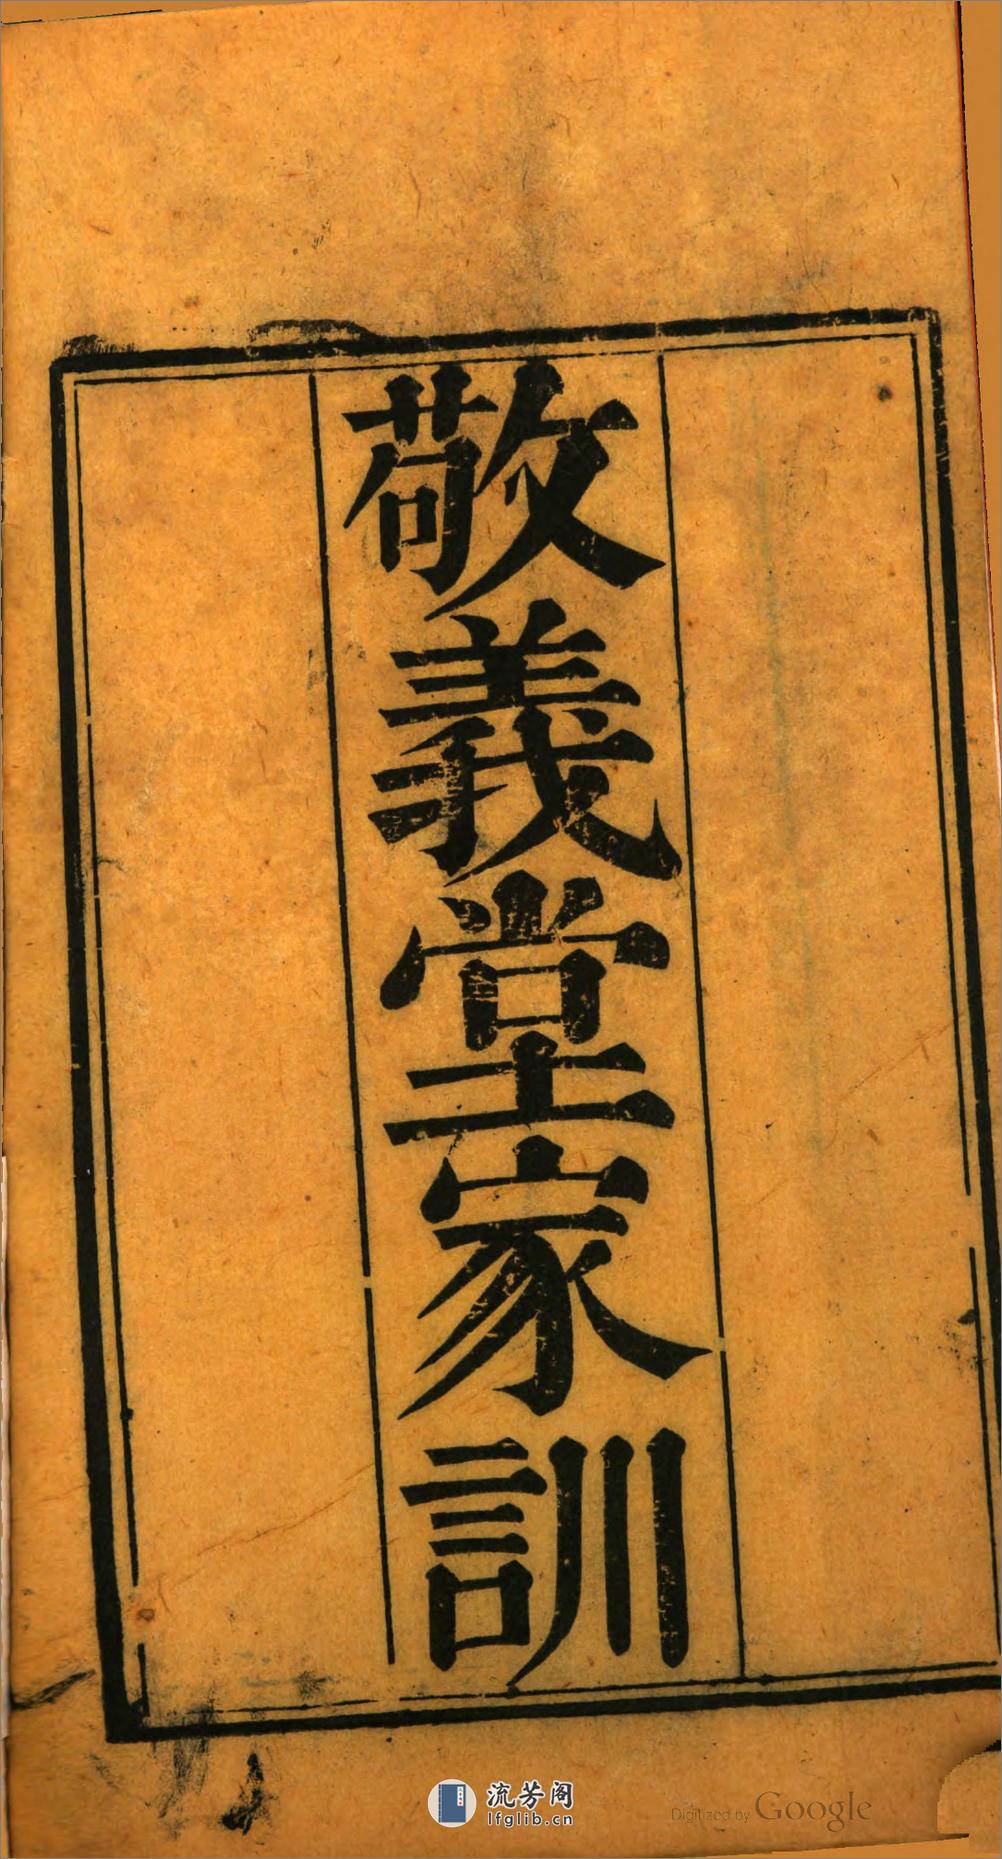 敬義堂家訓
流芳阁
lfglib.cn
Digitized by Google